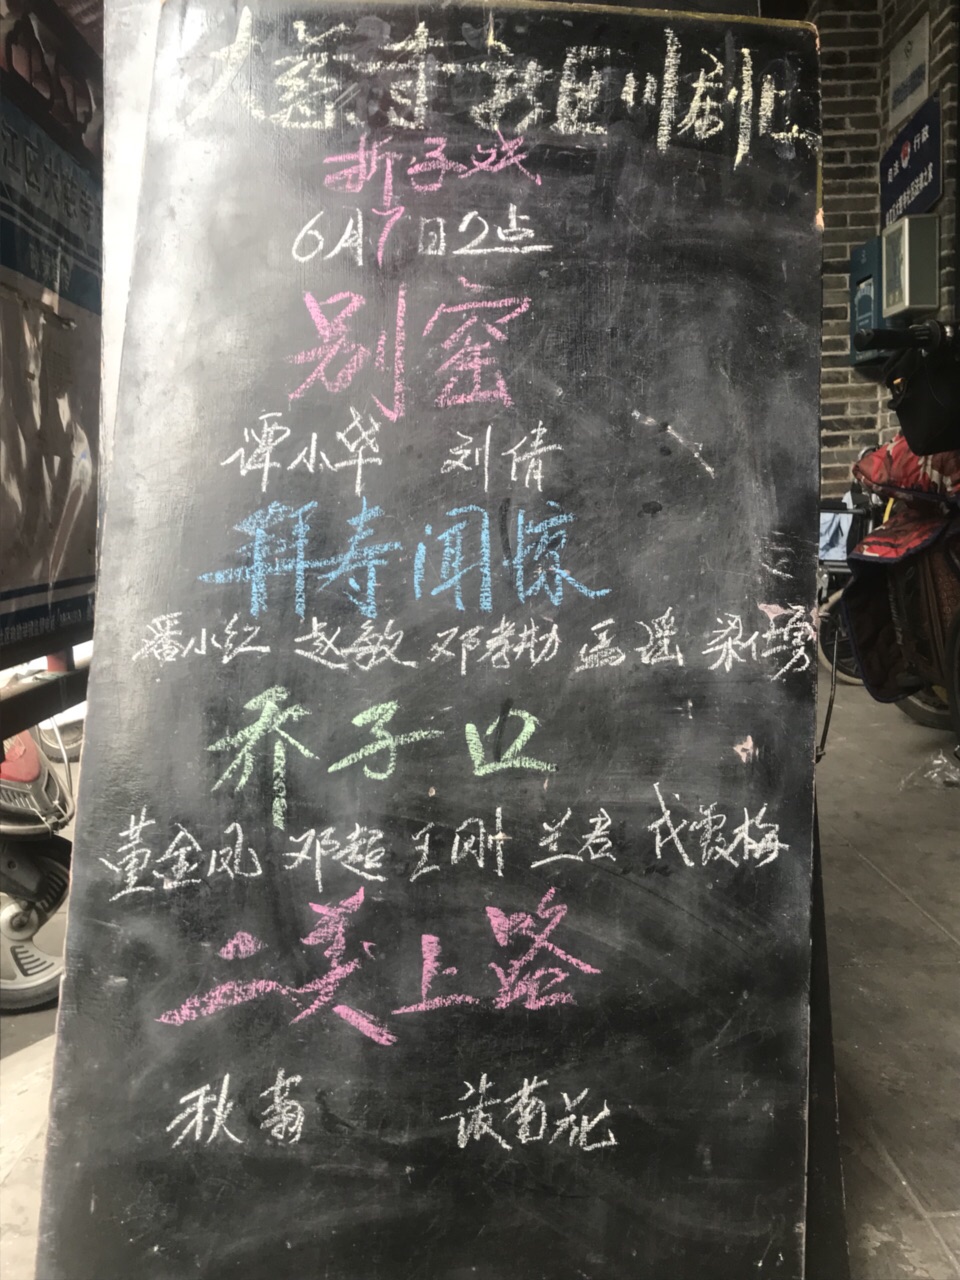 大慈寺社区川剧
折子戏
6月7日2点
别窑
谭小华 刘倩
拜寿闻惊
潘小红 赵敏 邓孝勋 马瑶 梁仕勇
乔子口
董金凤 邓超 王刚 兰君 戈霞梅
二美上路
秋菊 黄菊花
行政